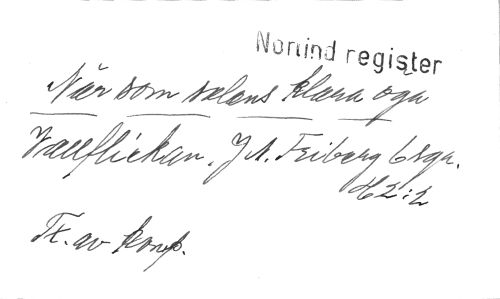 Nortind register
När som solens klara öga
Vallflickan. J A. Friberg 6 sgr.
H 2:2
Tx. av komp.